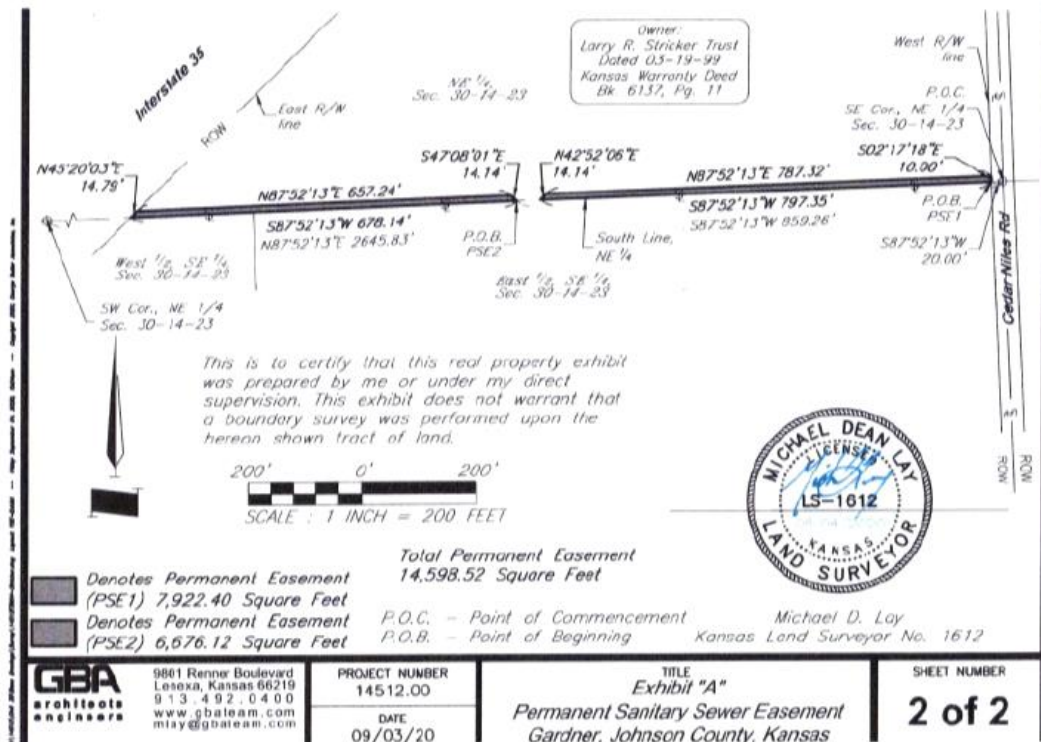 Owner:
Larry R. Stricker Trust
Dated 03-19-99
Kansas Warranty Deed
Bk. 6137, Pg. 11
West R/W
line
Interstate 35
NE 1/4,
Sec. 30-14-23
P.O.C.
SE Cor., NE 1/4
Sec. 30-14-23
East R/W
line
ROW
N45°20'03"E
14.79'
S47°08'01"E
14.14'
N42°52'06"E
14.14'
S02°17'18"E
10.00'
N87°52'13"E 657.24'
N87°52'13"E 787.32'
S87°52'13"W 678.14'
N87°52'13"E 2645.83'
S87°52'13"W 797.35'
S87°52'13"W 859.26'
P.O.B.
PSE2
South Line,
NE 1/4
P.O.B.
PSE1
S87°52'13"W
20.00'
West 1/2, SE 1/4,
Sec. 30-14-23
East 1/2, SE 1/4,
Sec. 30-14-23
SW Cor., NE 1/4
Sec. 30-14-23
Cedar Niles Rd
ROW
ROW
This is to certify that this real property exhibit
was prepared by me or under my direct
supervision. This exhibit does not warrant that
a boundary survey was performed upon the
hereon shown tract of land.
200' 0' 200'
SCALE : 1 INCH = 200 FEET
MICHAEL DEAN LAY
LICENSED
LS-1612
KANSAS
LAND SURVEYOR
Total Permanent Easement
14,598.52 Square Feet
Denotes Permanent Easement
(PSE1) 7,922.40 Square Feet
Denotes Permanent Easement
(PSE2) 6,676.12 Square Feet
P.O.C. - Point of Commencement
P.O.B. - Point of Beginning
Michael D. Lay
Kansas Land Surveyor No. 1612
GBA
architects
engineers
9801 Renner Boulevard
Lenexa, Kansas 66219
913.492.0400
www.gbateam.com
mlay@gbateam.com
PROJECT NUMBER
14512.00
DATE
09/03/20
TITLE
Exhibit "A"
Permanent Sanitary Sewer Easement
Gardner, Johnson County, Kansas
SHEET NUMBER
2 of 2